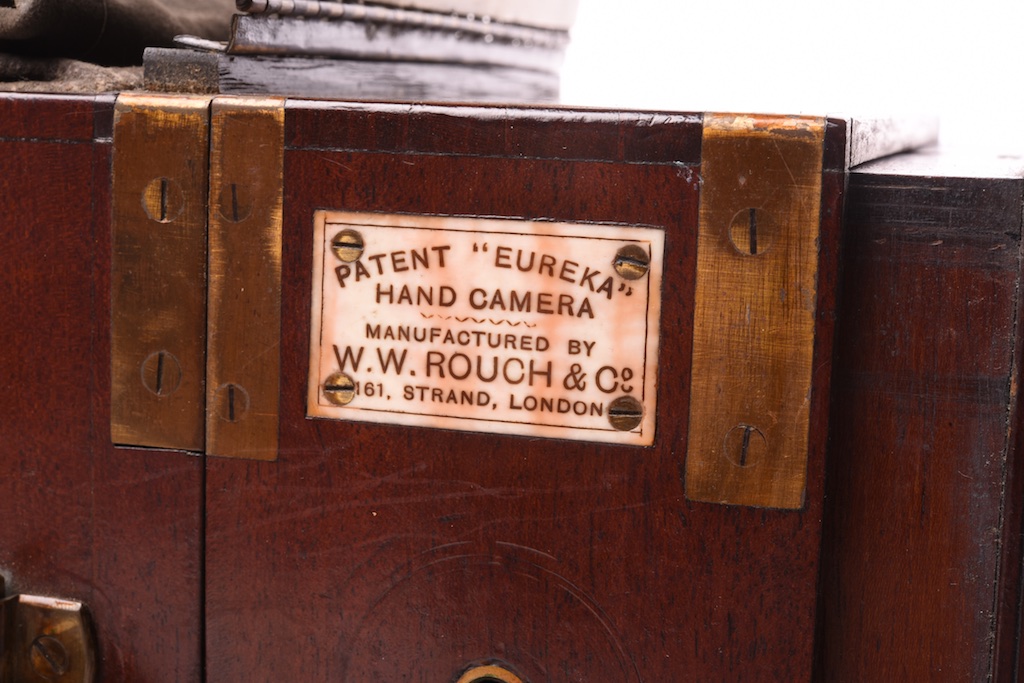 PATENT "EUREKA"
HAND CAMERA
MANUFACTURED BY
W.W. ROUCH & Co
161, STRAND, LONDON